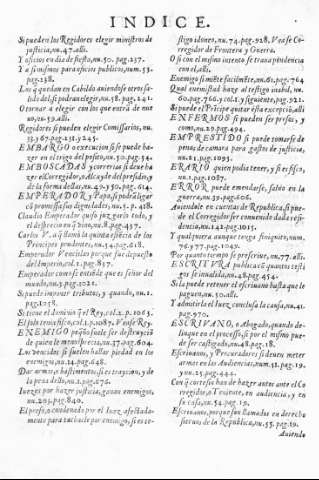 INDICE.
Si pueden los Regidores elegir ministros de
justicia, nu.47. alli.
Y oficios en dia de fiesta, nu.50. pag.237.
Y a si mismos para oficios publicos, num.55.
pag.238.
Los q̃ quedan en Cabildo auiendose otros sa-
lido del, si podran elegir, nu.58. pag.241.
O tornar a elegir con los que entrã de nue
uo, nu.59. alli.
Regidores si pueden elegir Comissarios, nu.
EMBARGO o execucion si se puede ha-
zer en el trigo del posito, nu.
EMBOSCADAS y correrias si deue ha
zer el Corregidor, o Alcayde del presidio, y
de la forma dellas, nu.49. y 50. pag. 614.
EMPERADOR y Papa, si pueden llegar
cõ promissas las dignidades, nu.5. p. 428.
Claudio Emperador quiso juzgarlo todo, y
el desprecio en q̃ vino, nu.8. pag.437.
Carlos V. aq̃l llamó la quinta essencia de los
Principes prudentes, nu.54. pag.618.
Emperador Venceslao por que fue depuesto
del Imperio, col.1. pag.857.
Emperador como se entiẽde que es señor del
mundo, nu.5. pag.1021.
Si puede imponer tributos, y quando, nu.1.
pag.1058.
Si tiene el dominio q̃ el Rey, col.2. p. 1063.
ENEMIGO
de quien le menosprecio, nu.27. pag. 604.
Los vencidos se suelen hallar piedad en los
enemigos, nu.24. pag.648.
Dar armas, o bastimentos, si es traycion, y de
la pena dello, nu.1. pag.676.
Iuezes por hazer justicia, ganan enemigos,
nu.203. pag.840.
El preso, o condenado por el Iuez afectada-
mente para tacharle por enemigo, si es te-
stigo idoneo, nu.74. pag.928. Vease Co-
rregidor de Frontera y Guerra.
O si con el mismo intento se traua pendẽcia
con el, alli.
Enemigo si miẽte facilmẽte, nu.61. pag.764
Qual enemistad haze al testigo inabil, nu.
60. pag.766. y col.2. y siguiente, pag.921.
Si puede el Principe quitar esta excepciõ, alli
ENFERMOS si pueden ser presos, y
como, nu.29. pag.494.
EMPRESTIDO si puede tomarse de
penas de camara para gastos de justicia,
nu.21. pag.1093.
ERARIO quien podia tener, y si es fisco,
nu.1. pag.1087.
ERROR puede emendarse, saluo en la
guerra, nu.39. pag.606.
Auiendole en cuentas de Republica, si pue-
de el Corregidor ser conuenido dada resi-
dencia, nu.142. pag.1015.
Y qualquiera aunque tenga finiquito, num.
76. y 77. pag.1042.
Por quanto tiempo se preserine, nu.77. alli.
ESCRITVRA publica cõ quantos testi
gos se inualida, nu.48. pag.454.
Si la puede retener el escriuano hasta que le
paguen, nu.50. alli.
Y adonde la el Iuez concluya la causa, nu.41.
pag.970.
ESCRIVANO, o Abogado, quando de-
linque en el processo, si por el mismo pue-
de ser castigado, nu.48. pag.18.
Escriuanos, y Procuradores si deuen meter
armas en las Audiencias, num.52. pag.19.
y nu.25. pag.444.
Con q̃ cortesia han de hazer autos ante el Co
rregidor, o Teniente, en audiencia, y en
su casa, nu.54. pag.19.
Escriuano, porque son llamados en derecho
sieruos de la Republica, nu.55. pag.19.
Auiendo